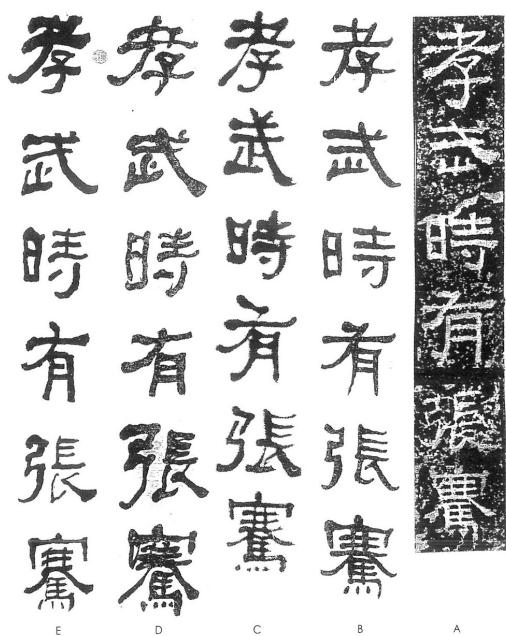 孝武時有張騫
孝武時有張騫
孝武時有張騫
孝武時有張騫
孝武時有張騫
E D C B A